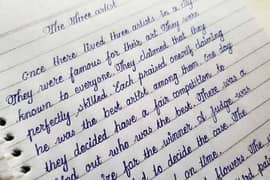 The three artist
Once there lived three artists in a city.
They were famous for their art. They were
known to everyone. They claimed that they
perfectly skilled. Each praised onerily claiming
he was the best artist among them. One day
they decided to have a fair competition to
find out who was the best. There was a
prize for the winner. A judge was
to decide the case. The
on time.
flowers. The